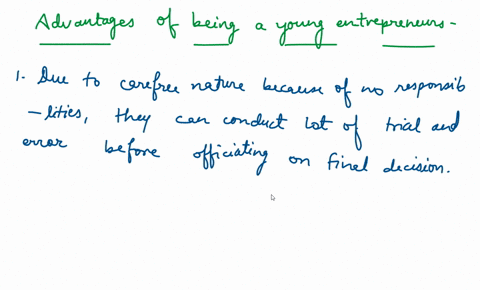 Advantages of being a young entrepreneurs -
1. Due to carefree nature because of no responsib
-lities, they can conduct lot of trial and
error before officiating on final decision.